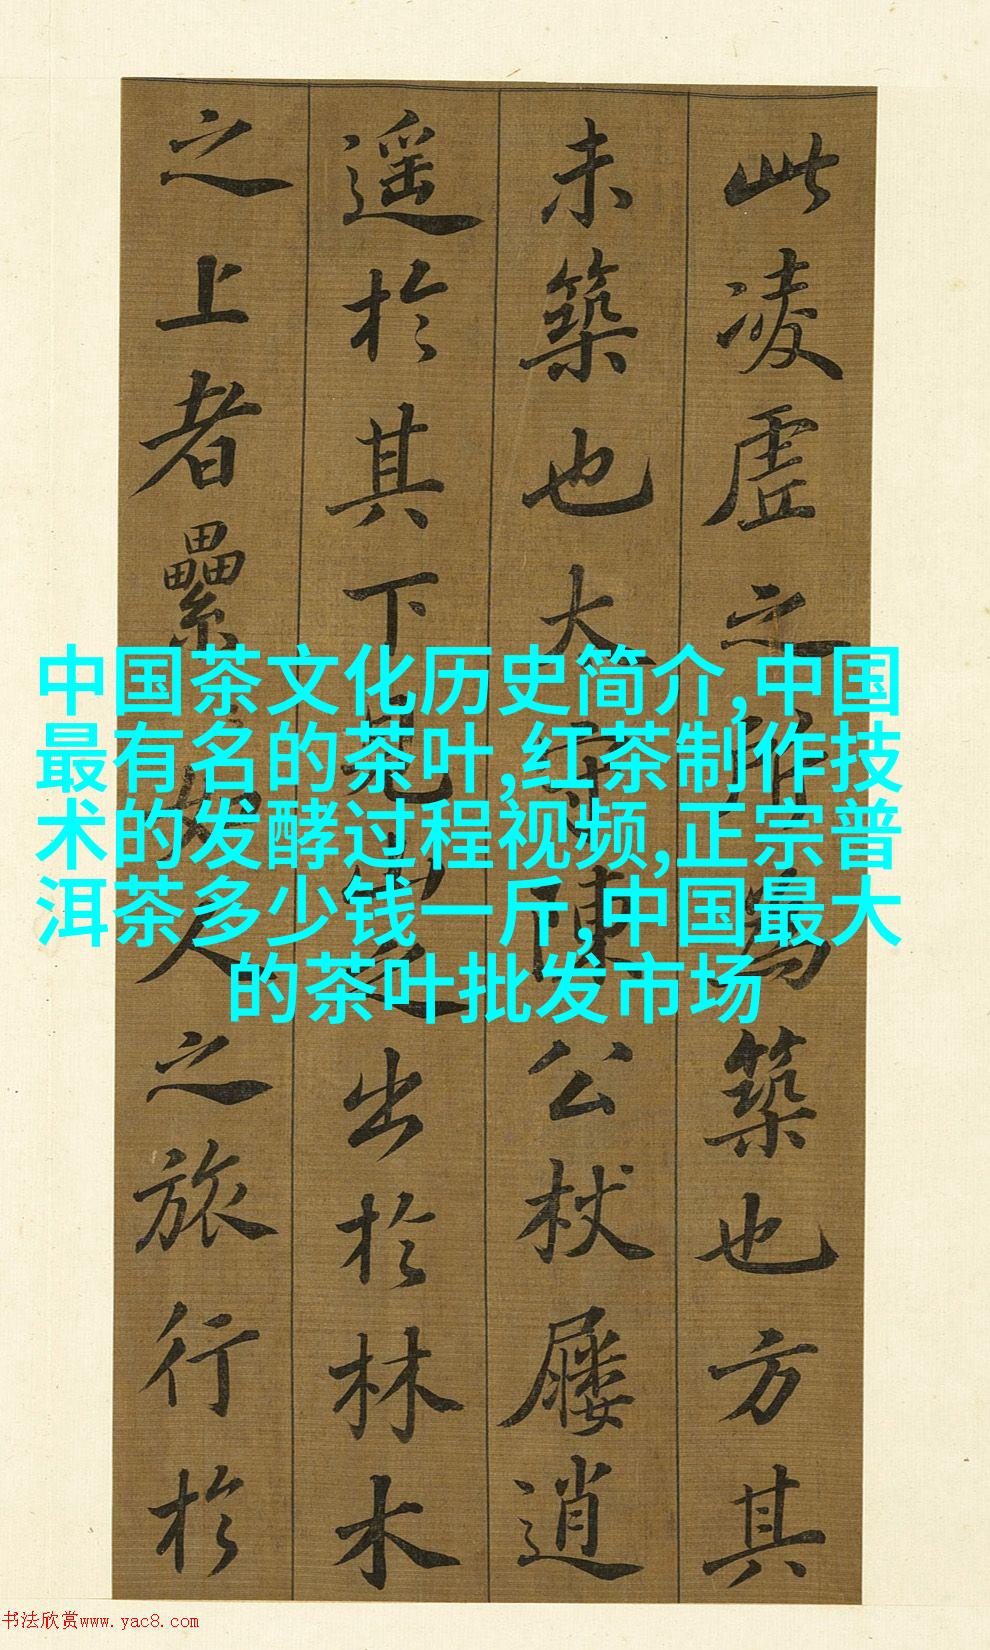 此凌虗之所為築也方其
未築也大守陳公杖屨逍
遥於其下見山之出於林木
之上者纍如人之旅行於
中国茶文化历史简介,中国
最有名的茶叶,红茶制作技
术的发酵过程视频,正宗普
洱茶多少钱一斤,中国最大
的茶叶批发市场
书法欣赏www.yac8.com